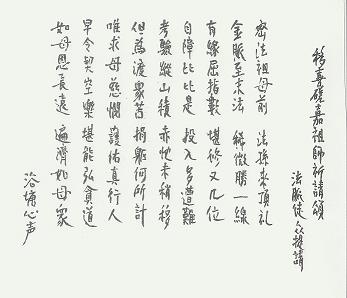 移喜磋嘉祖師祈請頌
法脈徒众提請
密法祖母前 法孫来頂礼
金脈至求法 稀微勝一線
有緣屈指數 堪修又几位
自障比比是 投入多遭難
考驗縱山積 赤忱未稍移
但為渡衆苦 捐軀何所計
唯求母慈憫 護佑真行人
早令契空樂 堪能弘貪道
如母恩長遠 遍濟如母衆
浴塘心声